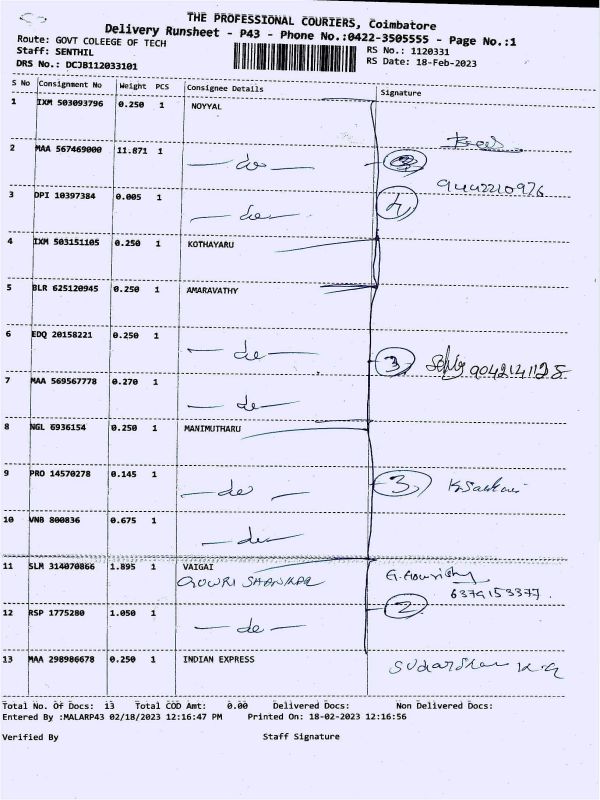 THE PROFESSIONAL COURIERS, Coimbatore
Delivery Runsheet - P43 - Phone No.:0422-3505555 - Page No.:1
Route: GOVT COLEEGE OF TECH
RS No.: 1120331
Staff: SENTHIL
RS Date: 18-Feb-2023
DRS No.: DCJB112033101
S No Consignment No Weight PCS Consignee Details Signature
1 IXM 503093796 0.250 1 NOYYAL
2 MAA 567469000 11.871 1 — do —
9442210976
3 DPI 10397384 0.005 1 — do — 4
4 IXM 503151105 0.250 1 KOTHAYARU
5 BLR 625120945 0.250 1 AMARAVATHY
6 EDQ 20158221 0.250 1 — do — 3 9042141128
7 MAA 569567778 0.270 1 — do —
8 NGL 6936154 0.250 1 MANIMUTHARU
9 PRO 14570278 0.145 1 — do — 3
10 VNB 800836 0.675 1 — do —
11 SLM 314070866 1.895 1 VAIGAI
GOWRI SHANKAR
6374153377.
12 RSP 1775280 1.050 1 — do — 2
13 MAA 298986678 0.250 1 INDIAN EXPRESS Sudarshan K.G
Total No. Of Docs: 13 Total COD Amt: 0.00 Delivered Docs: Non Delivered Docs:
Entered By :MALARP43 02/18/2023 12:16:47 PM Printed On: 18-02-2023 12:16:56
Verified By Staff Signature